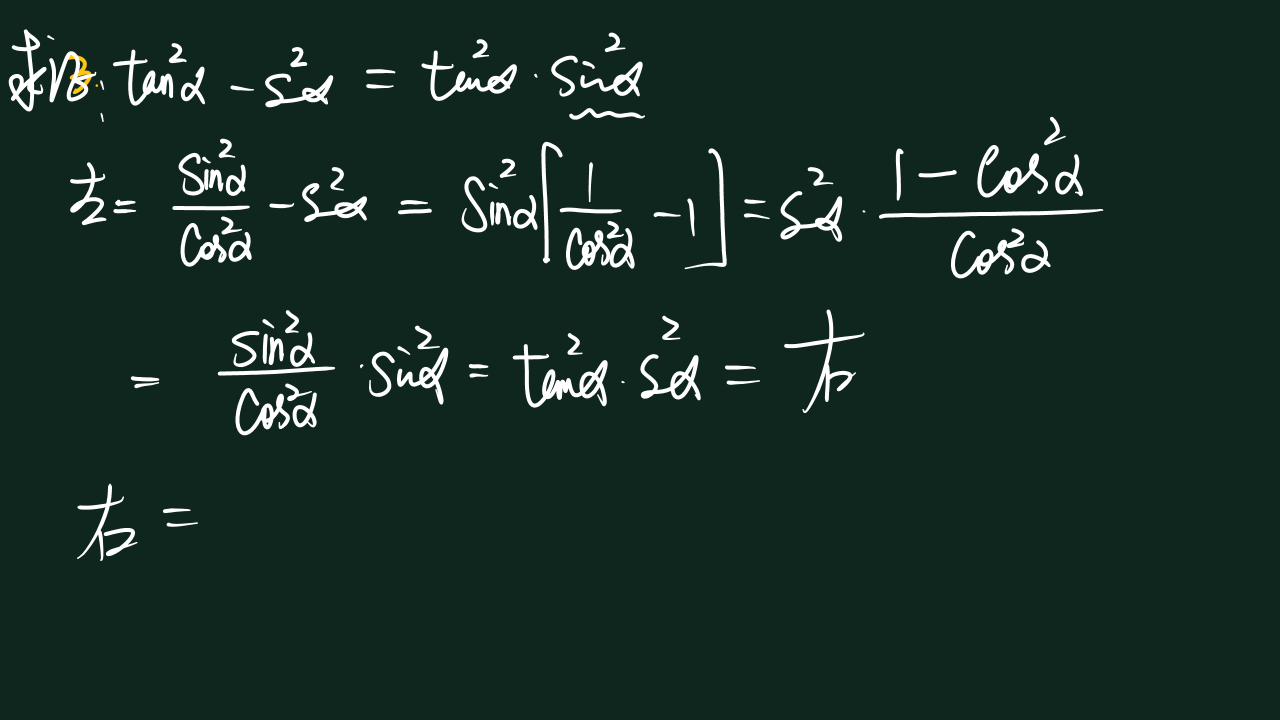 求证: tan²α - s²α = tan²α · sin²α
左 = sin²α/cos²α - s²α = sin²α[1/cos²α - 1] = s²α · (1 - cos²α)/cos²α
= sin²α/cos²α · sin²α = tan²α · s²α = 右
右 =